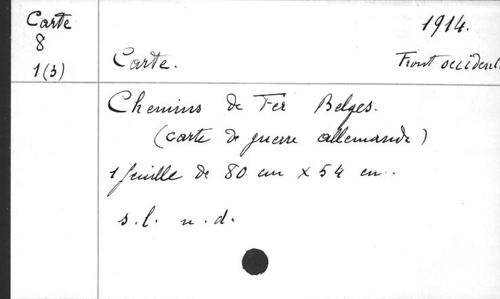 Carte
8
1(3)
1914.
Carte.
Front occident.
Chemins de Fer Belges.
(carte de guerre allemande)
1 feuille de 80 cm x 54 cm.
s.l. n.d.